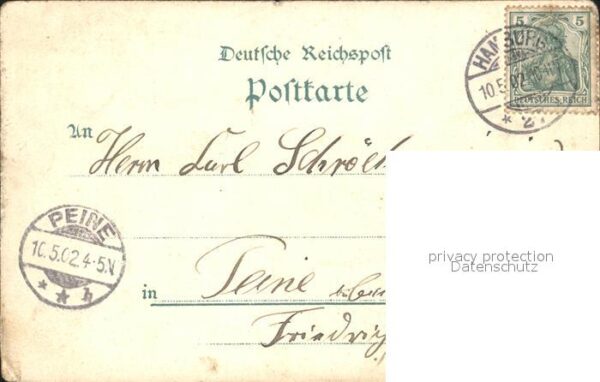 5 5
DEUTSCHES REICH
HAMBURG
10.5.02
* 2.
Deutsche Reichspost
Postkarte
An
Herrn Carl
PEINE
10.5.02.4-5.N
* * h
in Peine
privacy protection
Datenschutz